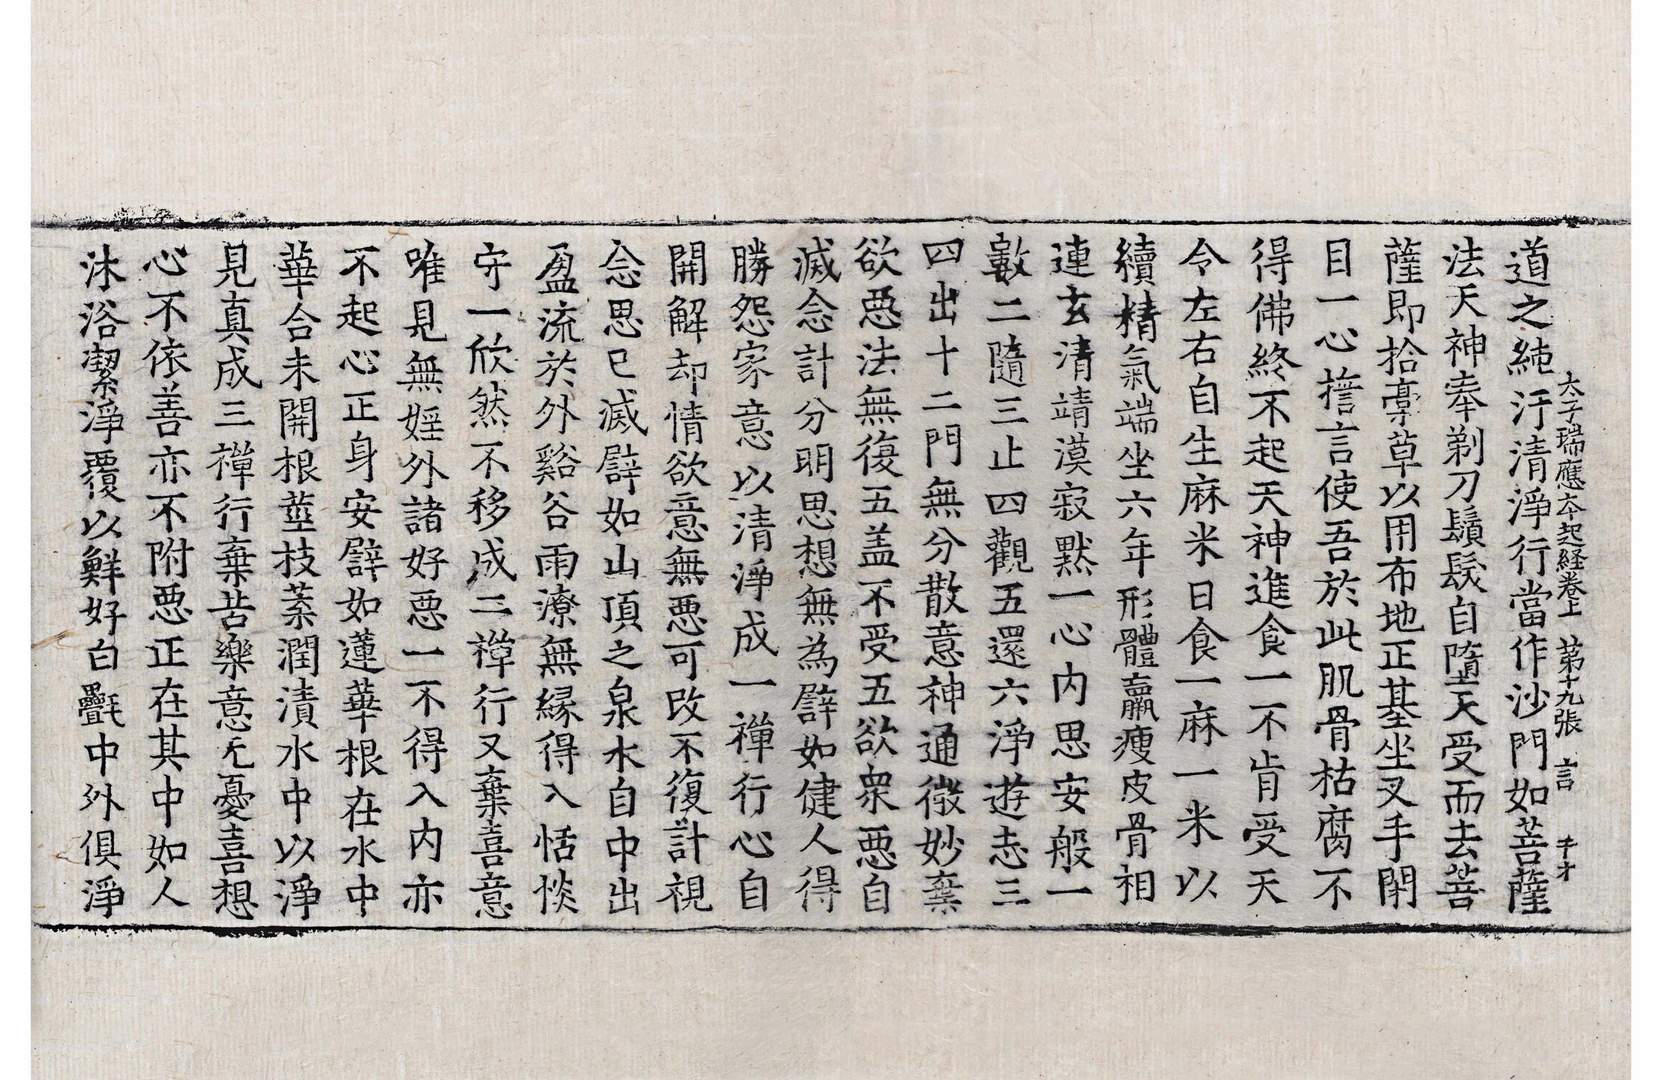 太子瑞應本起経卷上 第十九張 言 㐧才
道之純汙清淨行當作沙門如菩薩
法天神奉剃刀鬚髮自墮天受而去菩
薩即拾稾草以用布地正基坐叉手閉
目一心擔言使吾於此肌骨枯腐不
得佛終不起天神進食一不肯受天
令左右自生麻米日食一麻一米以
續精氣端坐六年形體羸瘦皮骨相
連玄清靖漠寂黙一心内思安般一
數二隨三止四觀五還六淨遊志三
四出十二門無分散意神通微妙棄
欲惡法無復五盖不受五欲衆惡自
滅念計分明思想無為譬如健人得
勝怨家意以清淨成一禪行心自
開解却情欲意無惡可改不復計視
念思已滅譬如山頂之泉水自中出
盈流於外谿谷雨潦無縁得入恬惔
守一欣然不移成二禪行又棄喜意
唯見無婬外諸好惡一不得入内亦
不起心正身安譬如蓮華根在水中
華合未開根莖枝葉潤漬水中以淨
見真成三禪行棄苦樂意无憂喜想
心不依善亦不附惡正在其中如人
沐浴潔淨覆以鮮好白㲲中外俱淨